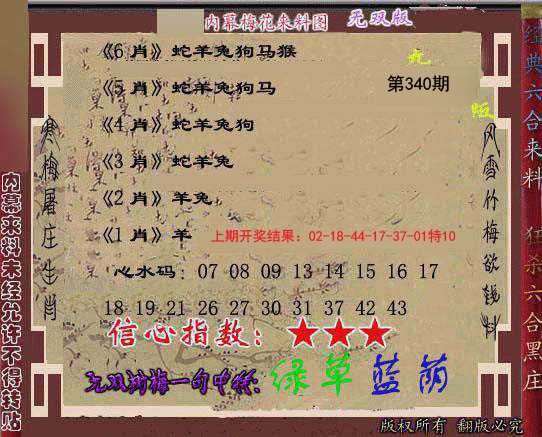 内幕梅花来料图 无双版
《6 肖》蛇羊兔狗马猴
《5 肖》蛇羊兔狗马
第340期
《4 肖》蛇羊兔狗
《3 肖》蛇羊兔
《2 肖》羊兔
《1 肖》羊
上期开奖结果：02-18-44-17-37-01特10
心水码：07 08 09 13 14 15 16 17
18 19 21 26 27 30 31 37 42 43
信心指数：★★★
绿草蓝荫
寒梅屠庄生肖
风雪竹梅欲钱料
内幕来料未经允许不得转贴
经典六合来料
狂杀六合黑庄
版权所有 翻版必究